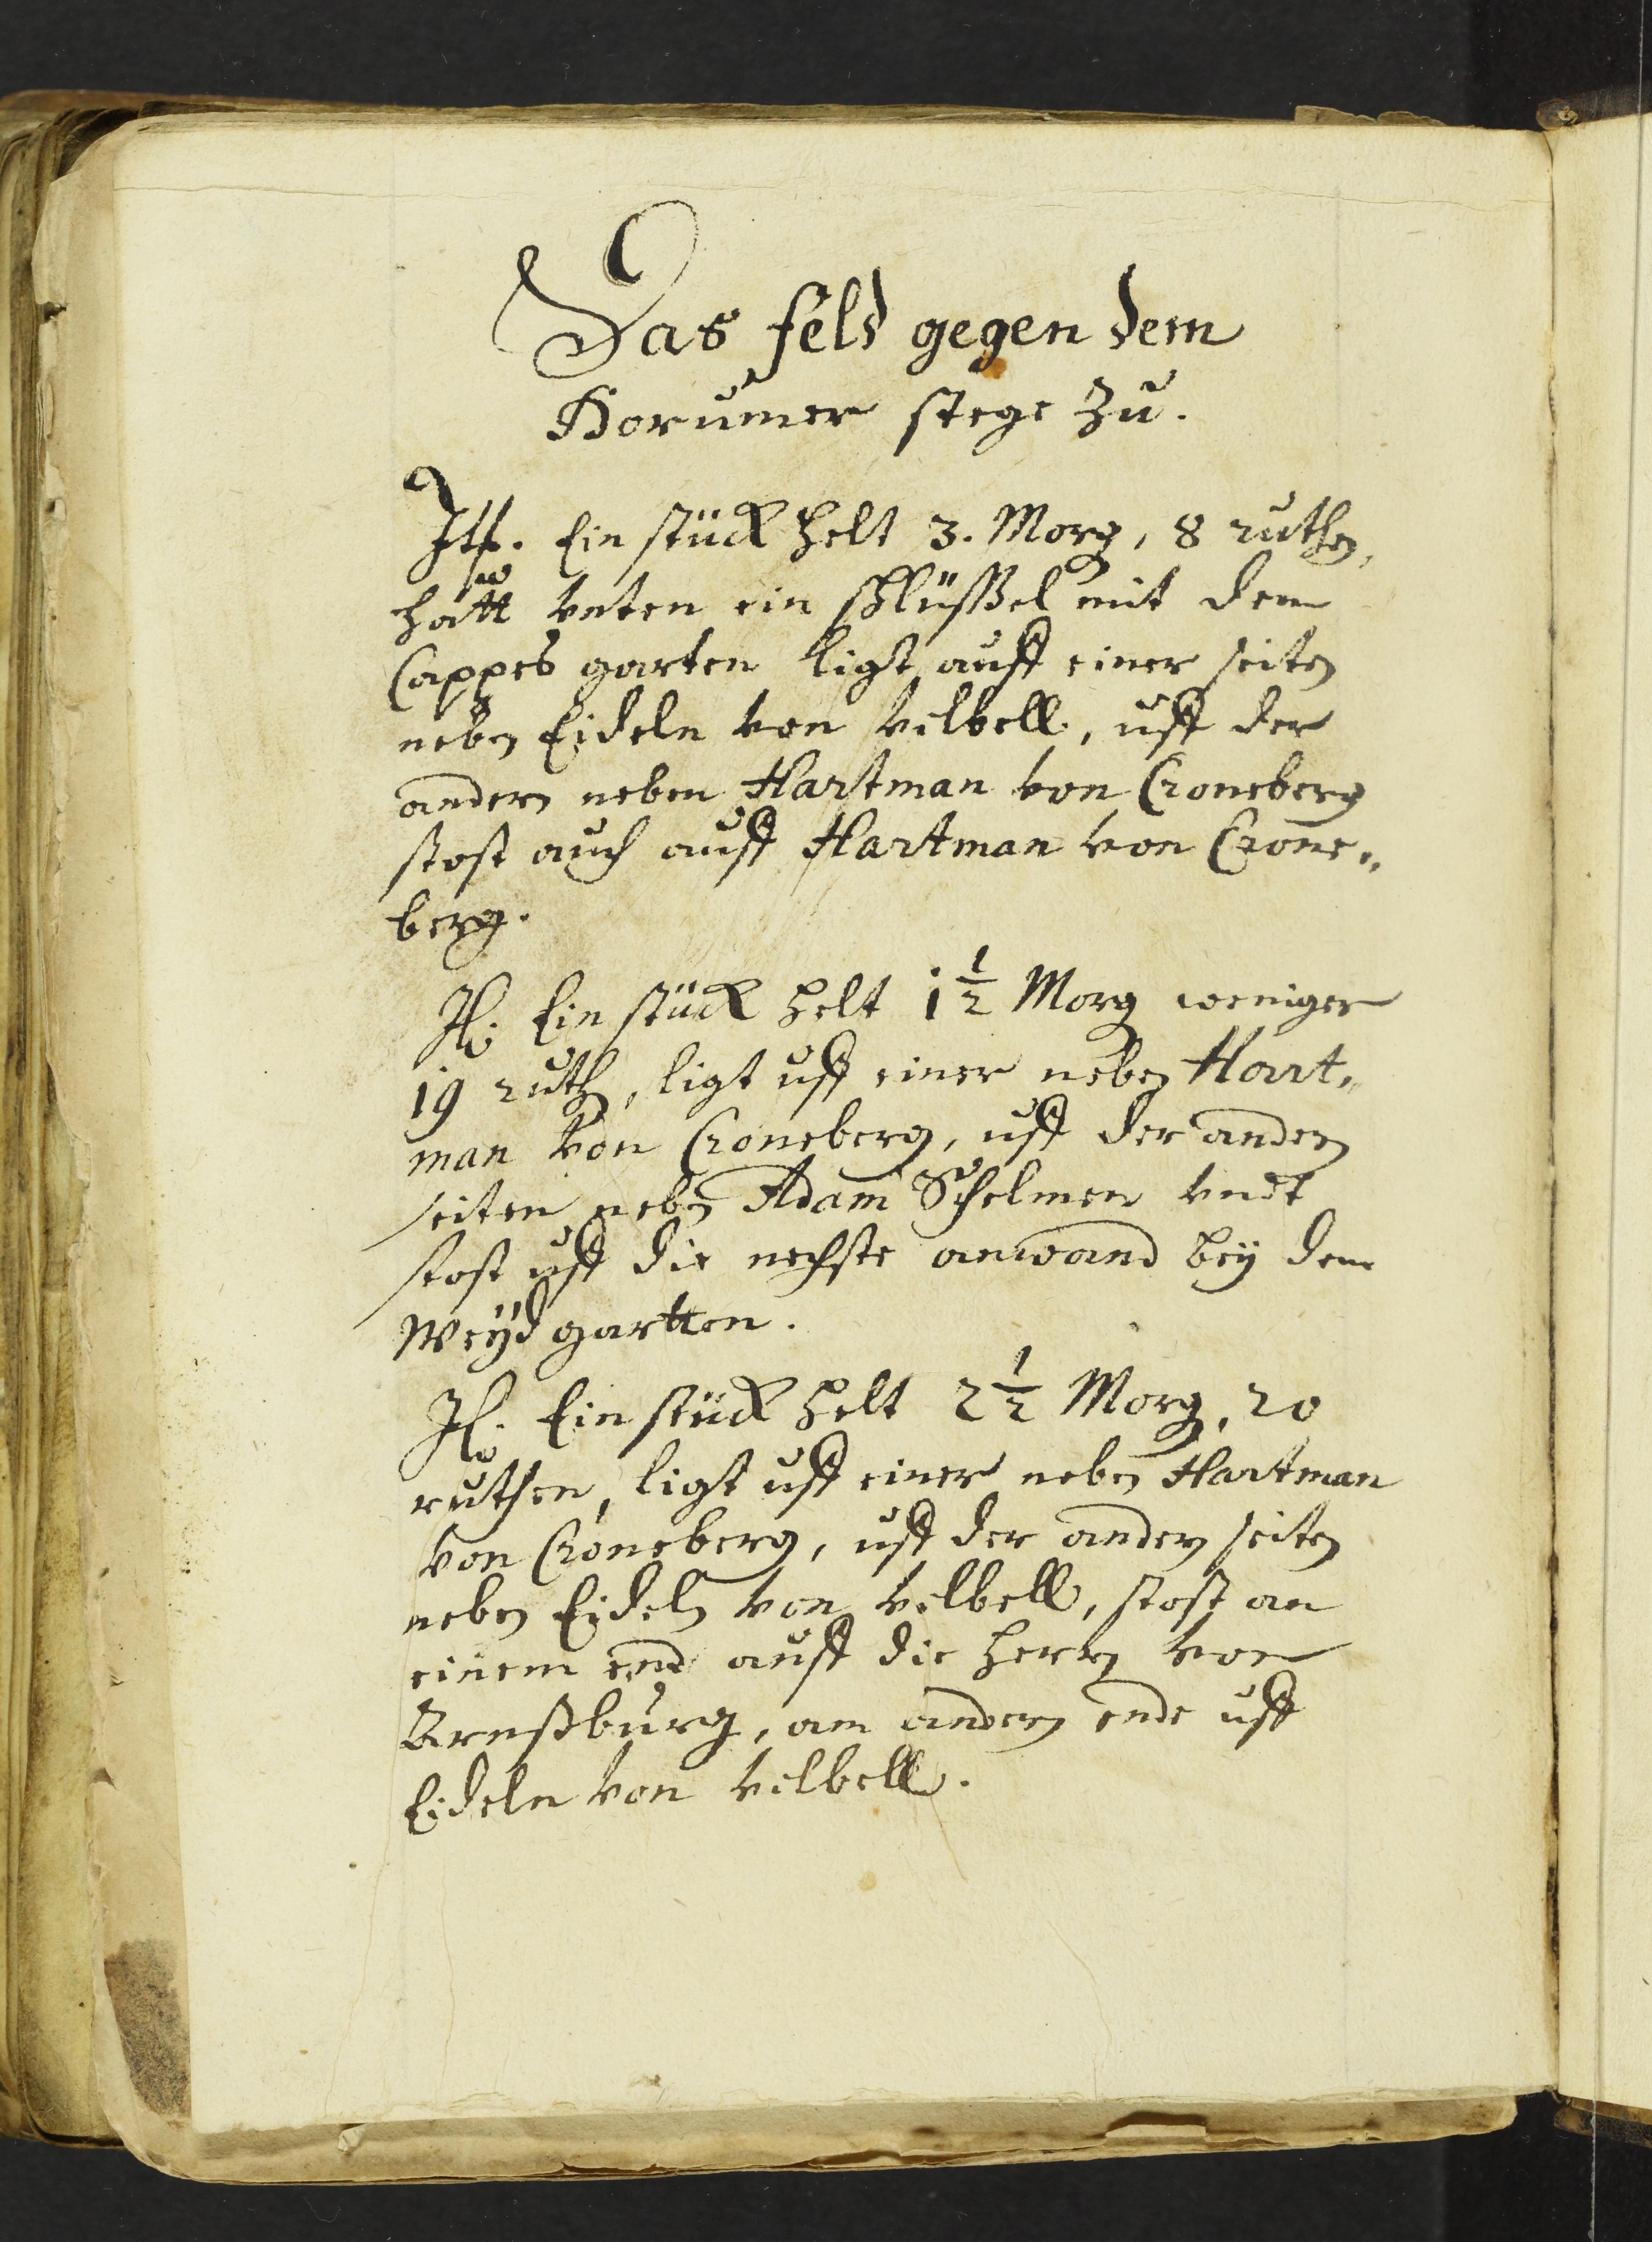 Das feld gegen dem
Dorumer stege zu.
Itē. Ein stück helt 3. Morg, 8 ruthen,
hatt vnten ein schlüssel mit dem
Cappes garten ligt auff einer seiten
neben Eideln von Vilbell, uff der
andern neben Hartman von Croneberg
stost auch auff Hartman von Crone„
berg.
It. Ein stück helt 1 1/2 Morg weniger
19 ruth, ligt uff einer neben Hart„
man von Croneberg, uff der andern
seiten neben Adam Schelmen vndt
stost uff die nechste anwand bey dem
Weÿdgartten.
It. Ein stück helt 2 1/2 Morg, 20
ruthen, ligt uff einer neben Hartman
von Croneberg, uff der andern seiten
neben Eideln von Velbell, stost an
einem end auff die herrn von
Arnßburg, am andern ende uff
Eideln von Velbell.